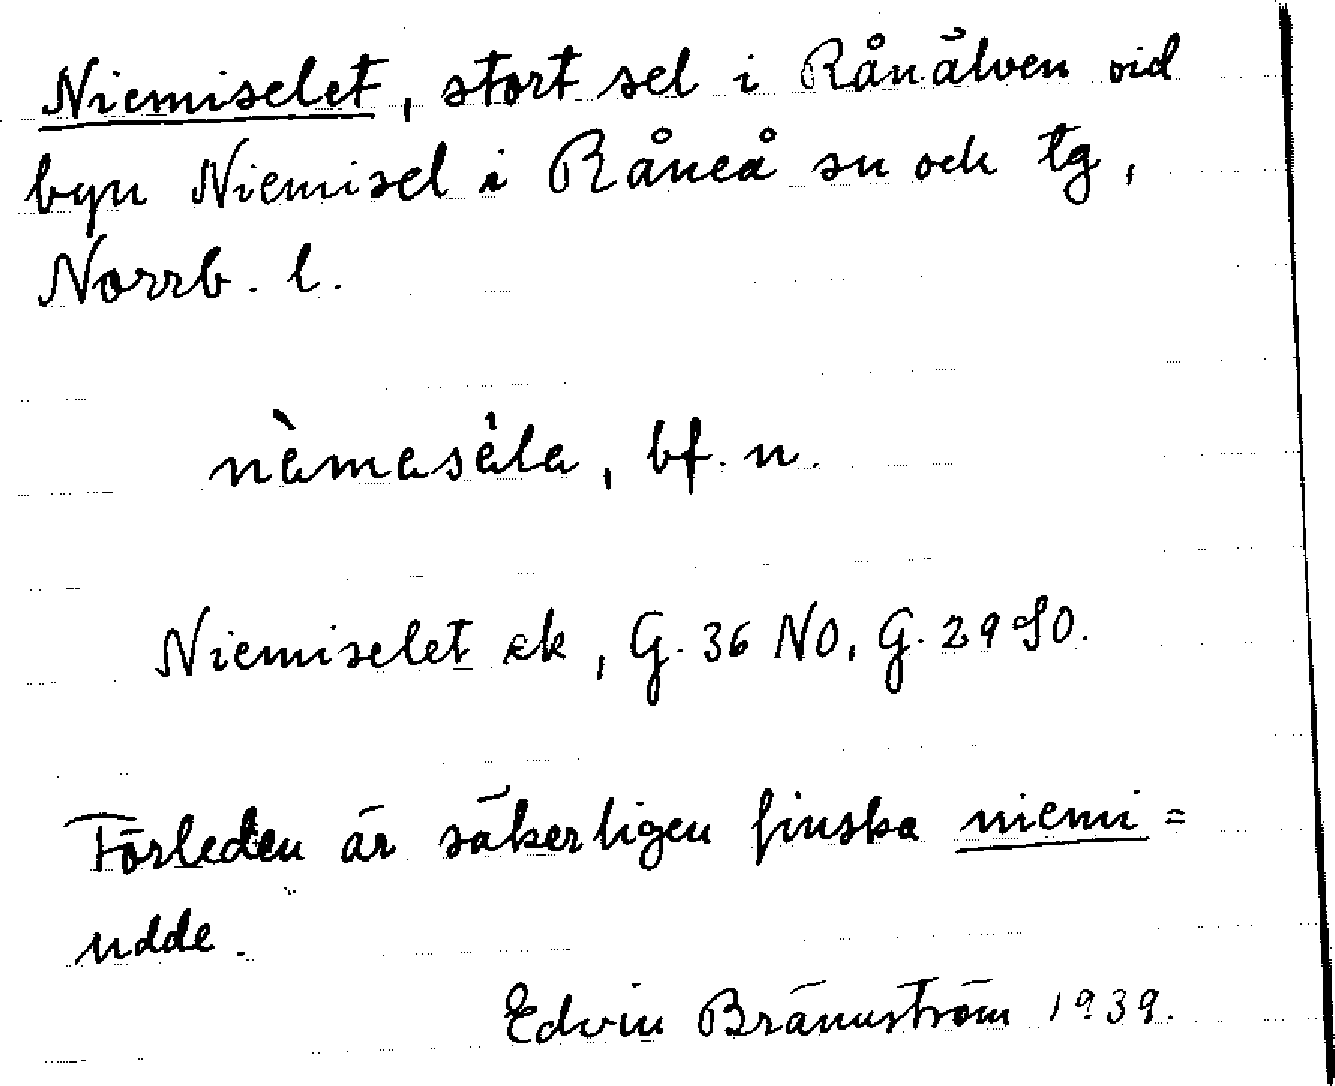 Niemiselet, stort sel i Rånälven vid
byn Niemisel i Råneå sn och tg,
Norrb. l.
nèmasèla, bf. n.
Niemiselet ek, G. 36 NO, G. 29 SO.
Förleden är säkerligen finska niemi =
udde.
Edvin Brännström 1939.